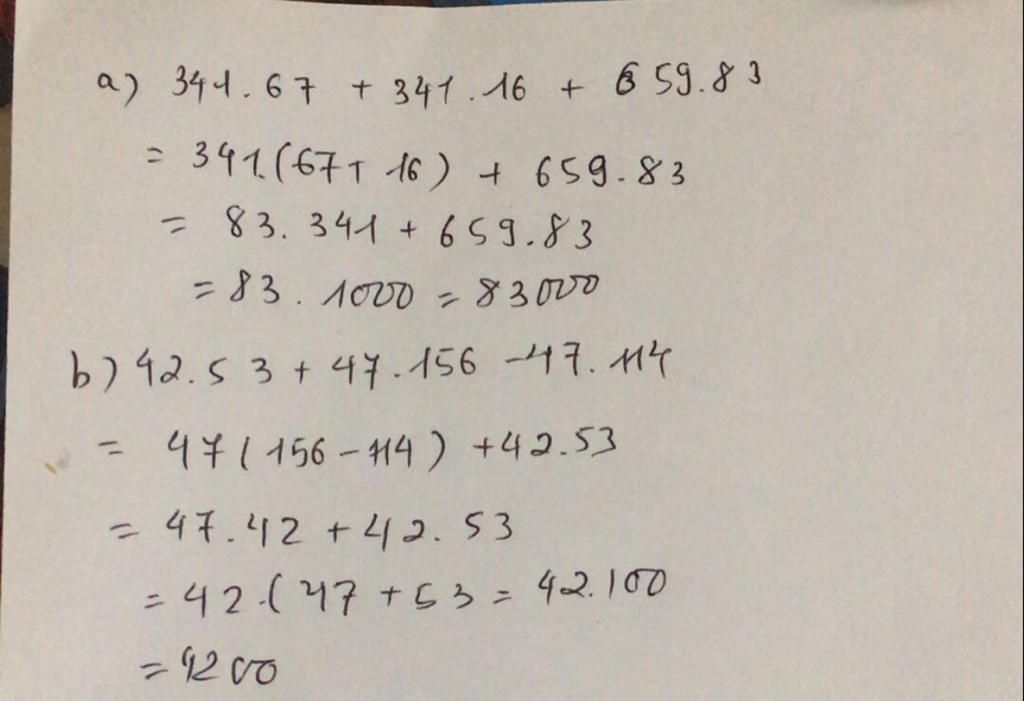 a) 341.67 + 341.16 + 659.83
= 341.(67+ 16) + 659.83
= 83.341 + 659.83
= 83.1000 = 83000
b) 42.53 + 47.156 - 47.114
= 47(156-114) + 42.53
= 47.42 + 42.53
= 42.(47+53 = 42.100
= 4200